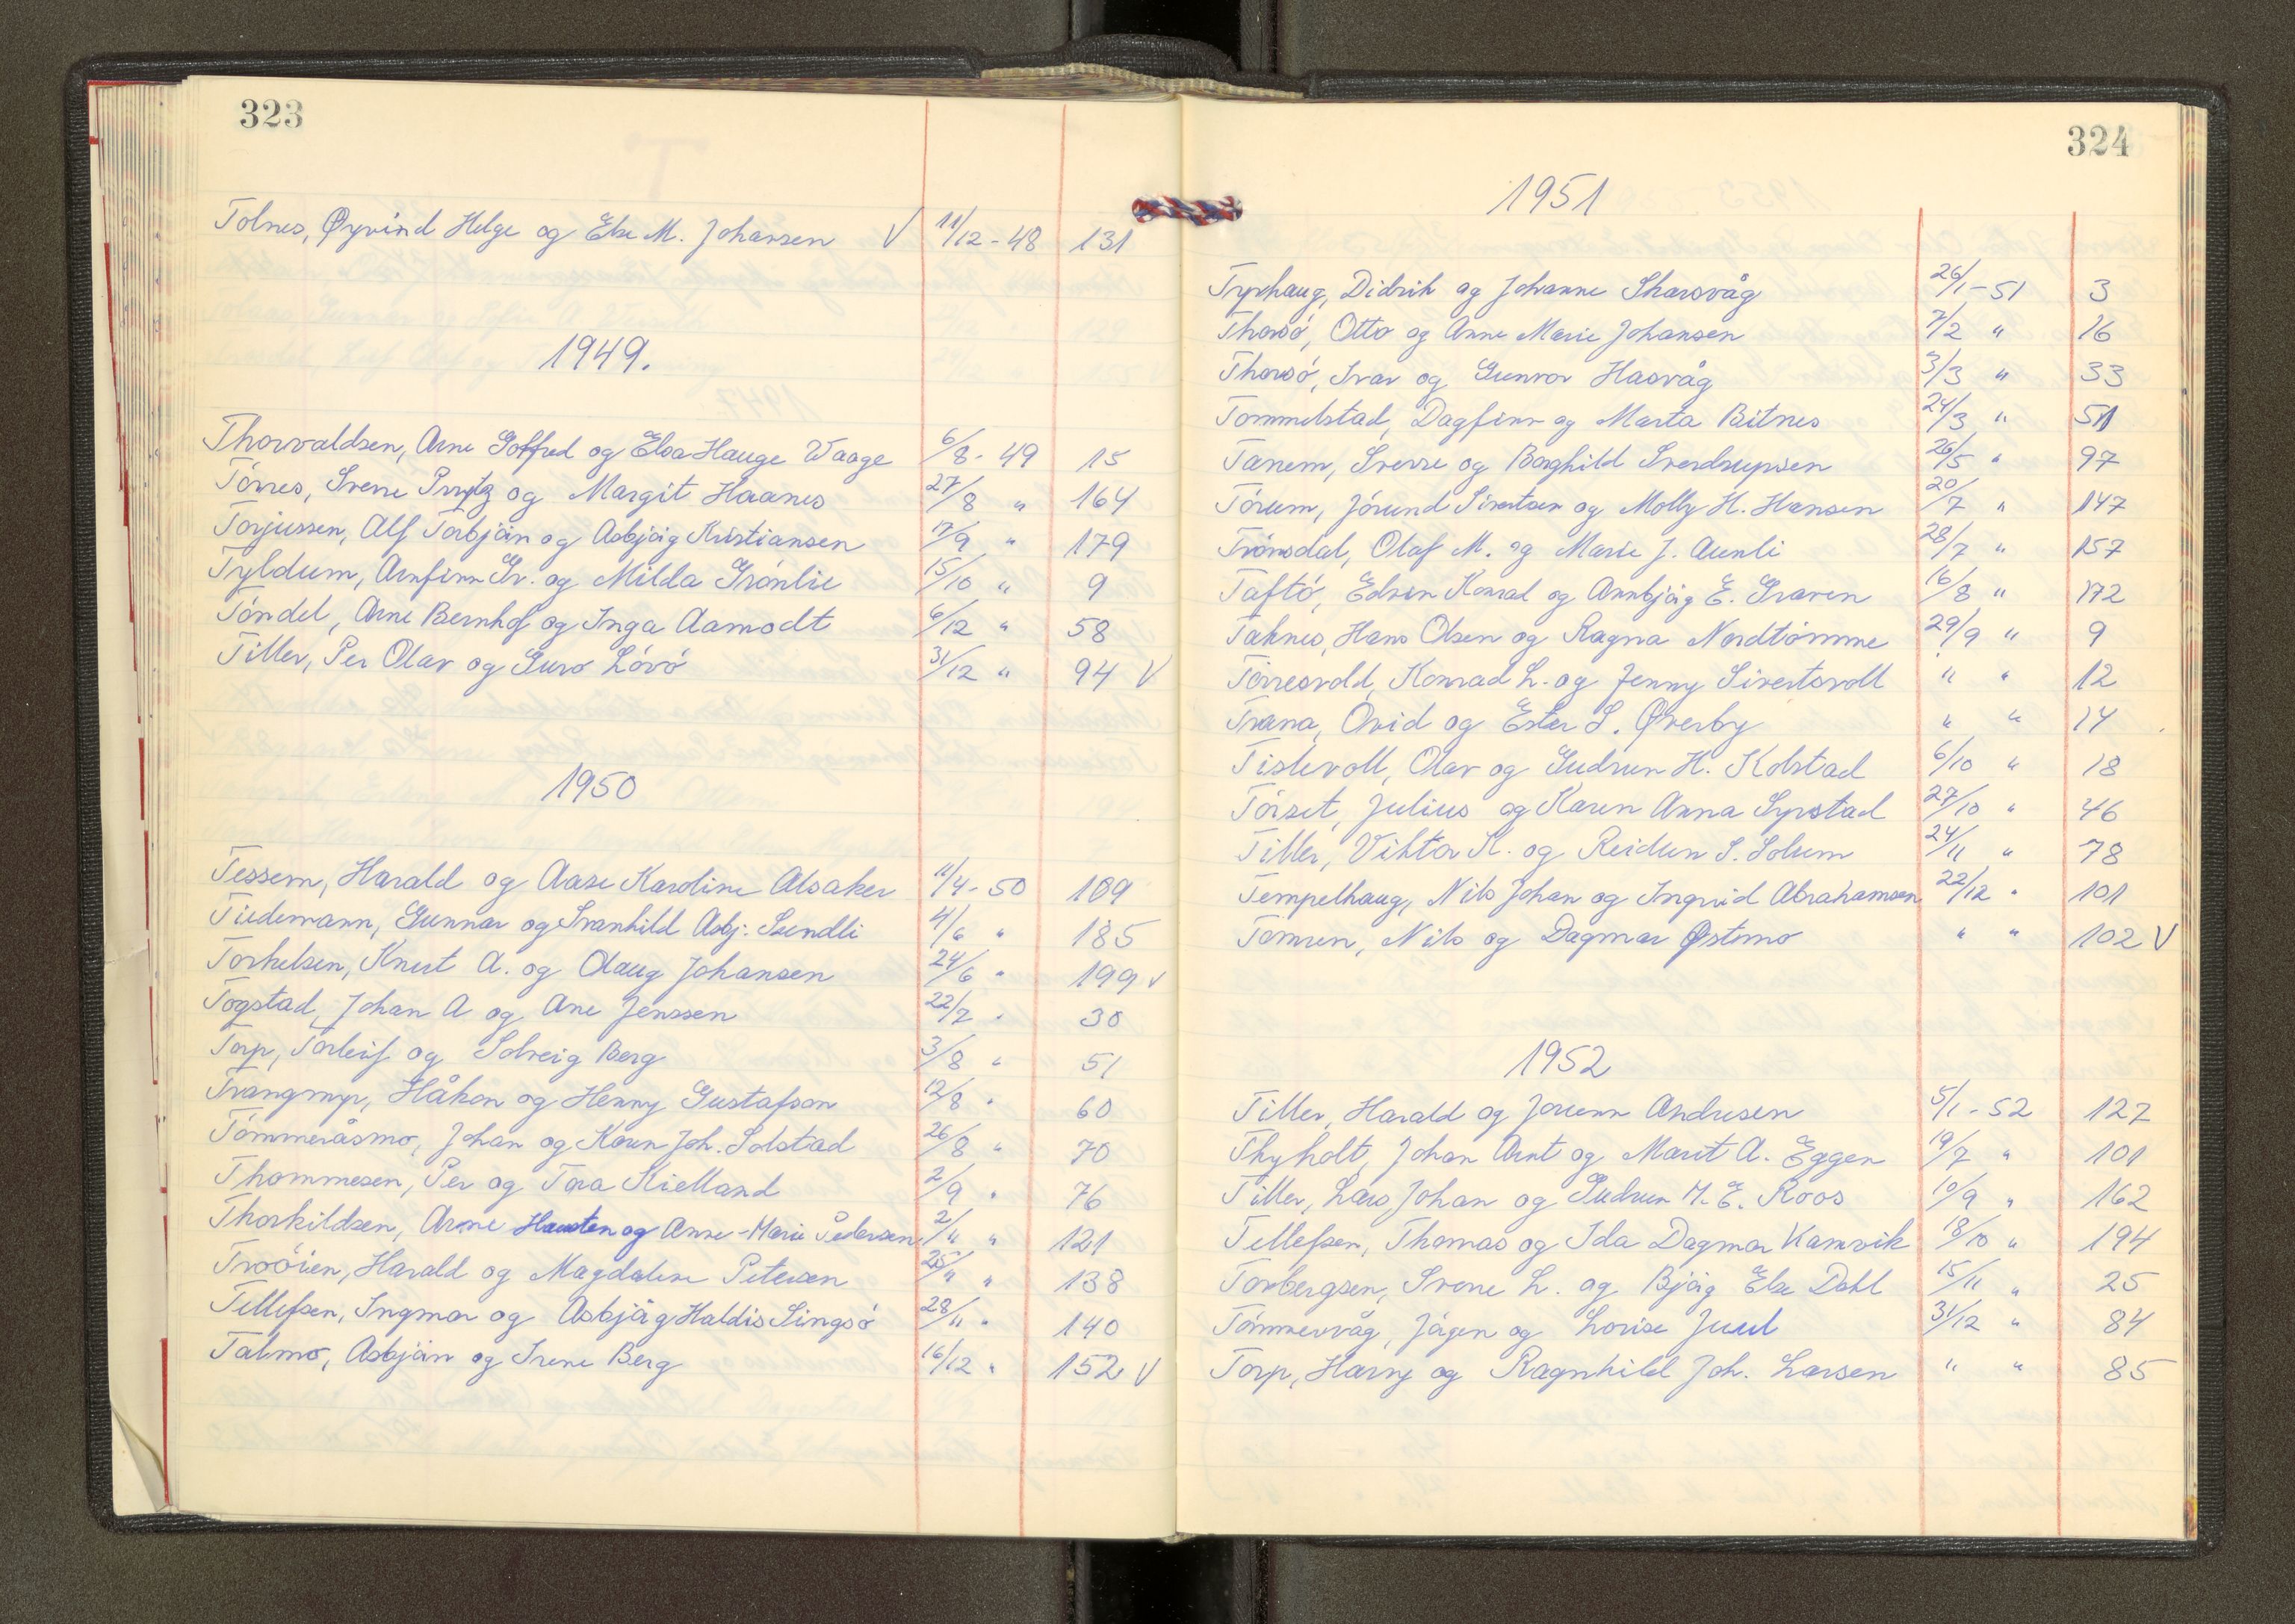 323
Tolnes, Øyvind Helge og Else M. Johansen V 11/12 - 48 131
1949.
Thorvaldsen, Arne Goffred og Elsa Hauge Waage 6/8 - 49 15
Tórres, Sverre Prytz og Margit Haanes 27/8 " 164
Torjussen, Alf Torbjórn og Asbjórg Kristiansen 17/9 " 179
Tyldum, Arnfinn Gr. og Milda Grónlie 15/10 " 9
Tóndel, Arne Bernhof og Inga Aamodt 6/12 " 58
Tiller, Per Olav og Guro Lóvó 31/12 " 94 V
1950
Tessem, Harald og Aase Karoline Alsaker 11/4 - 50 109
Tiedemann, Gunnar og Svanhild Asbj. Sundli 4/6 " 185
Torkelsen, Knut A. og Olaug Johansen 24/6 " 199 V
Togstad, Johan A og Ane Jenssen 22/7 " 30
Torp, Torleif og Solveig Berg 3/8 " 51
Trangmyr, Håkon og Henny Gustafson 12/8 " 60
Tómmeråsmo, Johan og Karen Joh. Solstad 26/8 " 70
Thommesen, Per og Tora Kielland 2/9 " 76
Thorkildsen, Arne Hausten og Anne-Marie Pedersen 2/11 " 121
Troóien, Harald og Magdalene Petersen 25/11 " 138
Tellefsen, Ingmar og Asbjórg Haldis Singsó 28/11 " 140
Talmo, Asbjórn og Irene Berg 16/12 " 152 V
324
1951
Tyrhaug, Didrik og Johanne Skarsvåg 26/1 - 51 3
Thorsó, Otto og Anne Marie Johansen 7/2 " 16
Thorsó, Ivar og Gunvor Hasvåg 3/3 " 33
Tommelstad, Dagfinn og Marta Bitnes 24/3 " 51
Tanem, Sverre og Borghild Sverdrupsen 26/5 " 97
Tórum, Jórund Sivertsen og Molly H. Hansen 20/7 " 147
Trónsdal, Olaf M. og Marie J. Aunli 28/7 " 157
Taftó, Edvin Konrad og Annbjórg E. Graven 16/8 " 172
Taknes, Hans Olsen og Ragna Nordtómme 29/9 " 9
Tórresvold, Konrad L. og Jenny Sivertsvoll " " 12
Trana, Ovid og Ester S. Øverby " " 14
Tislevoll, Olav og Gudrun H. Kolstad 6/10 " 18
Tórset, Julius og Karen Anna Syrstad 27/10 " 46
Tiller, Viktor K. og Reidun S. Solum 24/11 " 78
Tempelhaug, Nils Johan og Ingrid Abrahamsen 22/12 " 101
Tomren, Nils og Dagmar Østmo " " 102 V
1952
Tiller, Harald og Jorunn Andresen 5/1 - 52 127
Thyholt, Johan Arnt og Marit A. Eggen 19/7 " 101
Tiller, Lars Johan og Gudrun M. E. Roos 10/9 " 162
Tellefsen, Thomas og Ida Dagmar Kamvik 18/10 " 194
Torbergsen, Sverre L. og Bjórg Else Dahl 15/11 " 25
Tómmervåg, Jórgen og Lovise Juul 31/12 " 84
Torp, Harry og Ragnhild Joh. Larsen " " 85